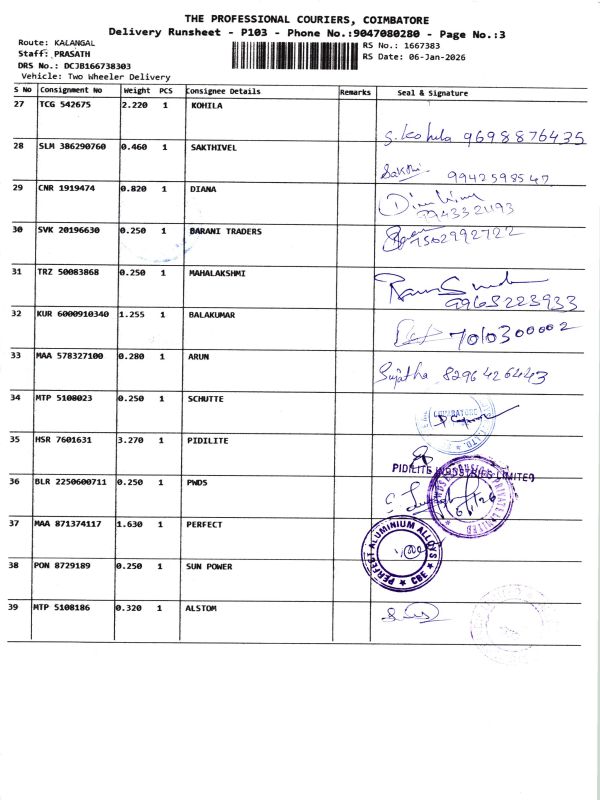 THE PROFESSIONAL COURIERS, COIMBATORE
Delivery Runsheet - P103 - Phone No.:9047080280 - Page No.:3
Route: KALANGAL
RS No.: 1667383
Staff: PRASATH
RS Date: 06-Jan-2026
DRS No.: DCJB166738303
Vehicle: Two Wheeler Delivery
S No Consignment No Weight PCS Consignee Details Remarks Seal & Signature
27 TCG 542675 2.220 1 KOHILA
S. Kohila 9698876435
28 SLM 386290760 0.460 1 SAKTHIVEL
Sakthi 9942598547
29 CNR 1919474 0.820 1 DIANA
9943321193
30 SVK 20196630 0.250 1 BARANI TRADERS
7502992722
31 TRZ 50083868 0.250 1 MAHALAKSHMI
9965223933
32 KUR 6000910340 1.255 1 BALAKUMAR
7010300002
33 MAA 578327100 0.280 1 ARUN
Sujatha 8296426443
34 MTP 5108023 0.250 1 SCHUTTE
COIMBATORE
35 HSR 7601631 3.270 1 PIDILITE
PIDILITE INDUSTRIES LIMITED
36 BLR 2250600711 0.250 1 PWDS
PRIVATE LIMITED
6/1/26
37 MAA 871374117 1.630 1 PERFECT
PERFECT ALUMINIUM ALLOYS
CBE
38 PON 8729189 0.250 1 SUN POWER
39 MTP 5108186 0.320 1 ALSTOM